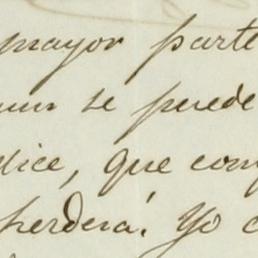 mayor parte
se puede
dice, que com
perderá. Yo